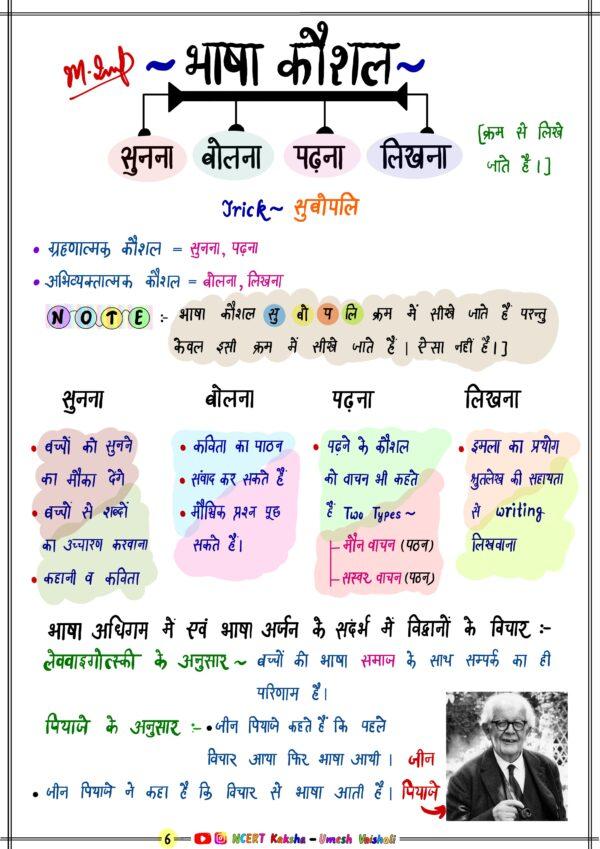 M.Imp
~ भाषा कौशल ~
सुनना बोलना पढ़ना लिखना
[क्रम से लिखे
जाते है।]
Trick~ सुबोपलि
• ग्रहणात्मक कौशल = सुनना, पढ़ना
• अभिव्यक्तात्मक कौशल = बोलना, लिखना
NOTE :- भाषा कौशल सु बो प लि क्रम में सीखे जाते हैं परन्तु
केवल इसी क्रम में सीखे जाते हैं। ऐसा नहीं है।]
सुनना
• बच्चों को सुनने
का मौका देंगे
• बच्चों से शब्दों
का उच्चारण करवाना
• कहानी व कविता
बोलना
• कविता का पाठन
• संवाद कर सकते हैं
• मौखिक प्रश्न पूछ
सकते हैं।
पढ़ना
• पढ़ने के कौशल
को वाचन भी कहते
हैं Two Types ~
मौन वाचन (पठन)
सस्वर वाचन (पठन)
लिखना
• इमला का प्रयोग
श्रुतलेख की सहायता
से writing
लिखवाना
भाषा अधिगम में एवं भाषा अर्जन के सदंर्भ में विद्वानों के विचार :-
लेववाइगोत्स्की के अनुसार ~ बच्चों की भाषा समाज के साथ सम्पर्क का ही
परिणाम है।
पियाजे के अनुसार :- • जीन पियाजे कहते हैं कि पहले
विचार आया फिर भाषा आयी।
• जीन पियाजे ने कहा है कि विचार से भाषा आती है।
जीन
पियाजे
6 NCERT Kaksha - Umesh Vaishali